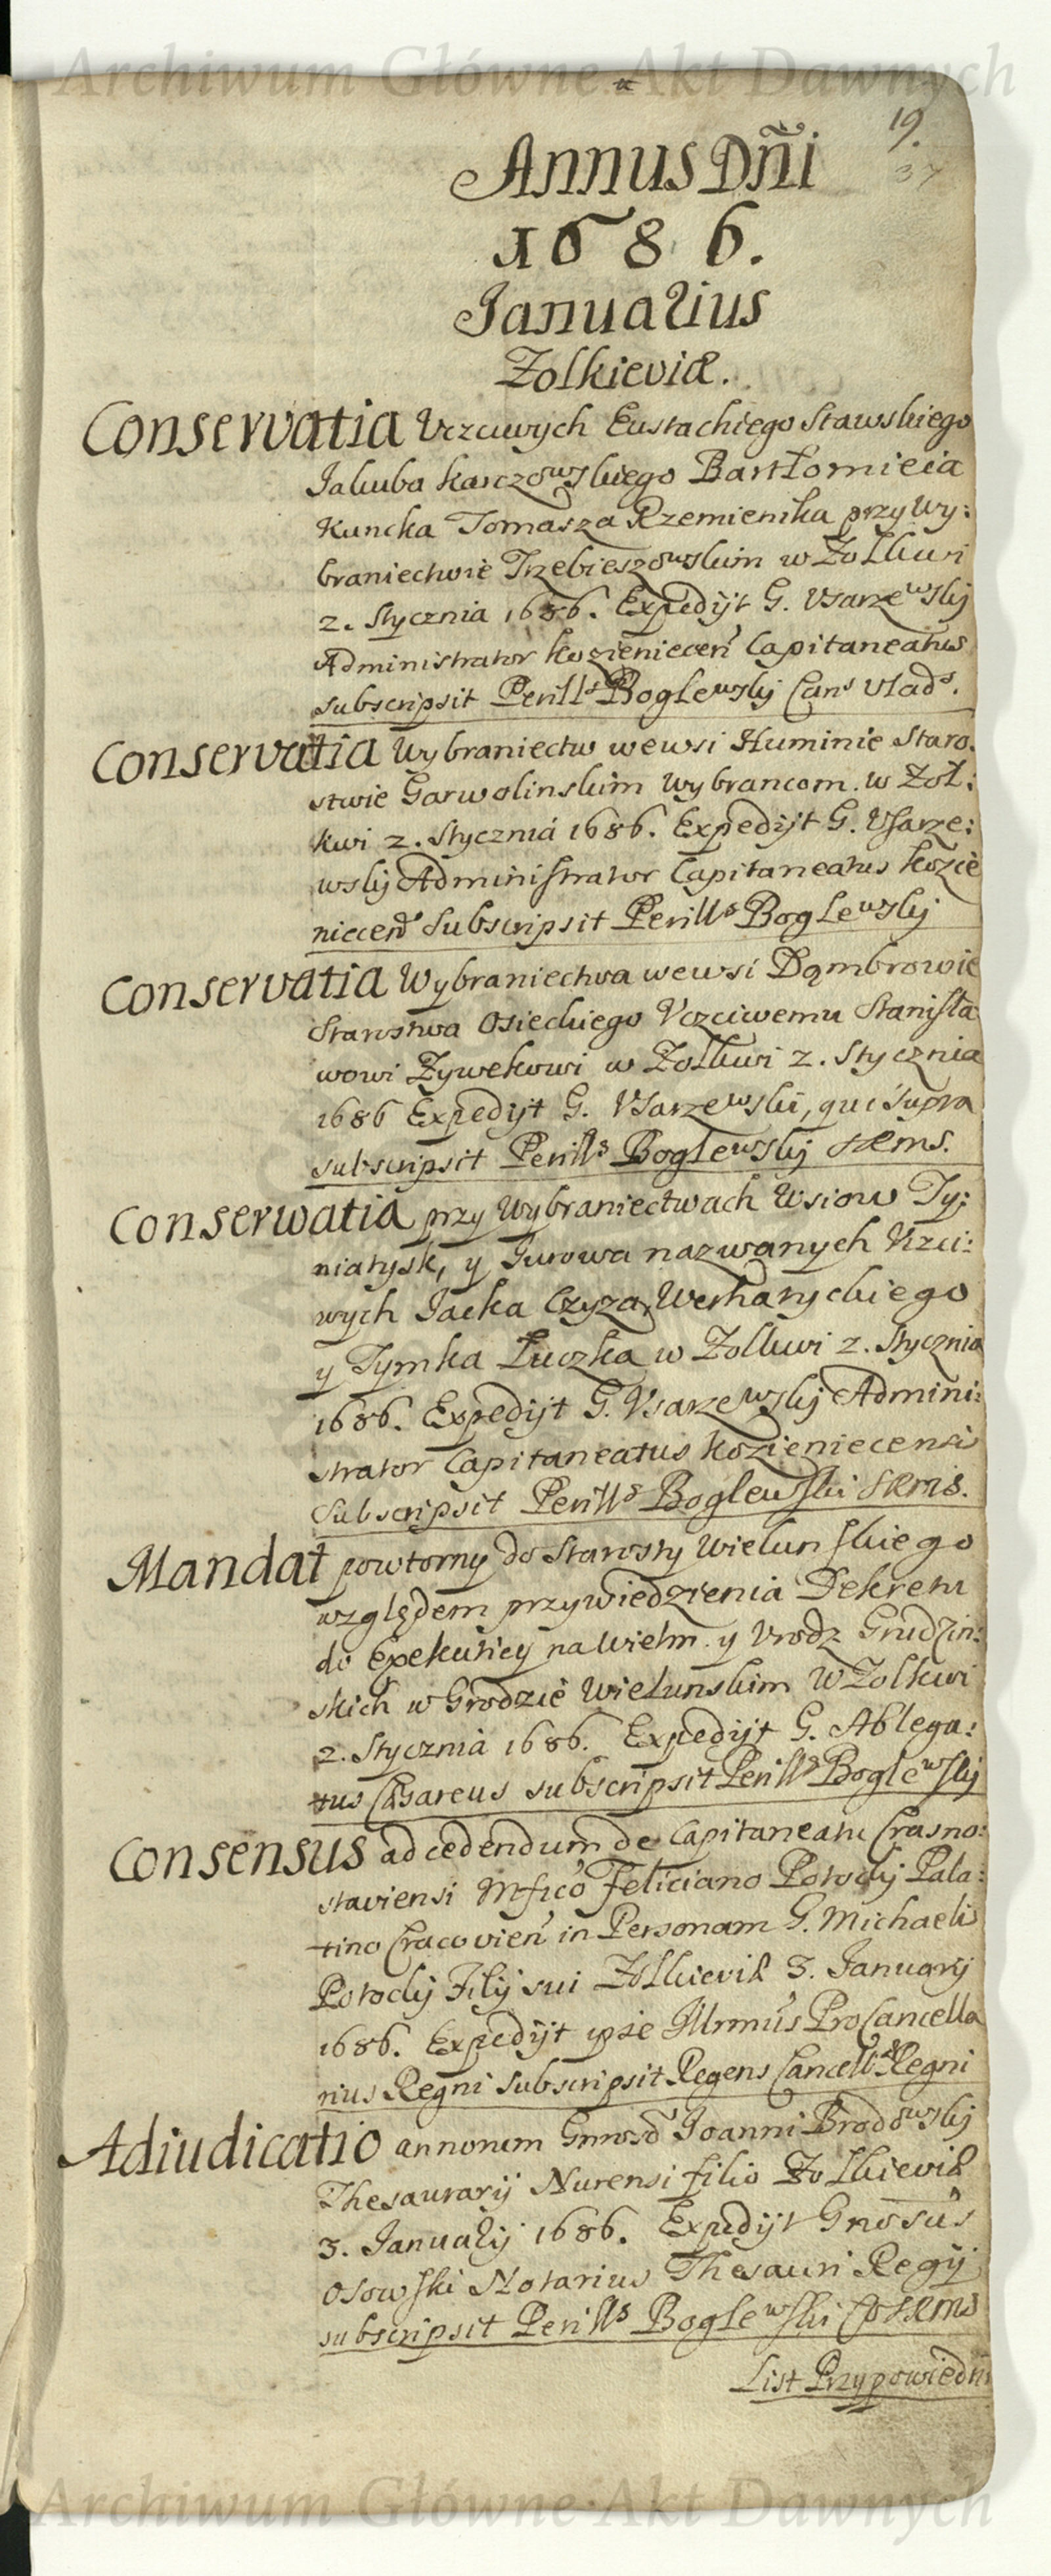 Archiwum Główne Akt Dawnych
19.
37
Annus Dñi
1686.
Januarius
Zolkieviæ.
Conservatia Uczciwych Eustachiego Stawskiego
Jakuba Karczowskiego Bartłomieia
Kuncka Tomasza Rzemienika przy Wy:
braniectwie Trzebieszowskim w Zolkwi
2. Stycznia 1686. Expedijt G. Vsarzewskj
Administrator Kozienieceñ Capitaneatus
subscripsit Perills Boglewskj Canˢ Vladˢ.
Conservatia Wybraniectw wewsi Huminie Staro.
stwie Garwolinskim Wybrancom. w Zoł:
kwi 2. Stycznia 1686. Expedijt G. Vsarze:
wskj Administrator Capitaneatus Kozie
nieceñ Subscripsit Perills Boglewskj
Conservatia Wybraniectwa wewsi Dąmbrowie
Starostwa Osieckiego Vczciwemu Stanisła
wowi Zywekowi w Zolkwi 2. Stycznia
1686 Expedijt G. Vsarzewski, qui supra
subscripsit Perills Boglewskj SRMs.
Conserwatia przy Wybraniectwach Wsiow Ty:
niatysk, y Jurowa nazwanych Vczci:
wych Jacka Czyza, Werharyckiego
y Tymka Łuczka w Zolkwi 2. Stycznia
1686. Expedijt G. Vsarzewskj Admini:
strator Capitaneatus Kozieniecensis
Subscripsit Perills Boglewski SRMs.
Mandat powtorny do Starosty Wielunskiego
względem przywiedzienia Dekretu
do Exekutiey na Wielm. y Vrodz Grudzin:
skich w Grodzie Wielunskim W Zolkwi
2. Stycznia 1686. Expedijt G. Ablega:
tus Cæsareus subscripsit Perills Boglewskj
Consensus ad cedendum de Capitaneatu Crasno:
staviensi Mfico Feliciano Potockj Pala:
tino Cracovieñ in Personam G. Michaelis
Potockj Filij sui Zolkieviæ 3. Januarij
1686. Expedijt ipse Illrmus ProCancella
rius Regni Subscripsit Regens Cancellæ Regni
Adiudicatio annonem Gnroso Joanni Brodowskj
Thesaurarij Nurensi filio Zolkieviæ
3. Januarij 1686. Expedijt Gnosus
Osowski Notarius Thesauri Regij
subscripsit Perills Boglewski
List Przypowiedni
Archiwum Główne Akt Dawnych